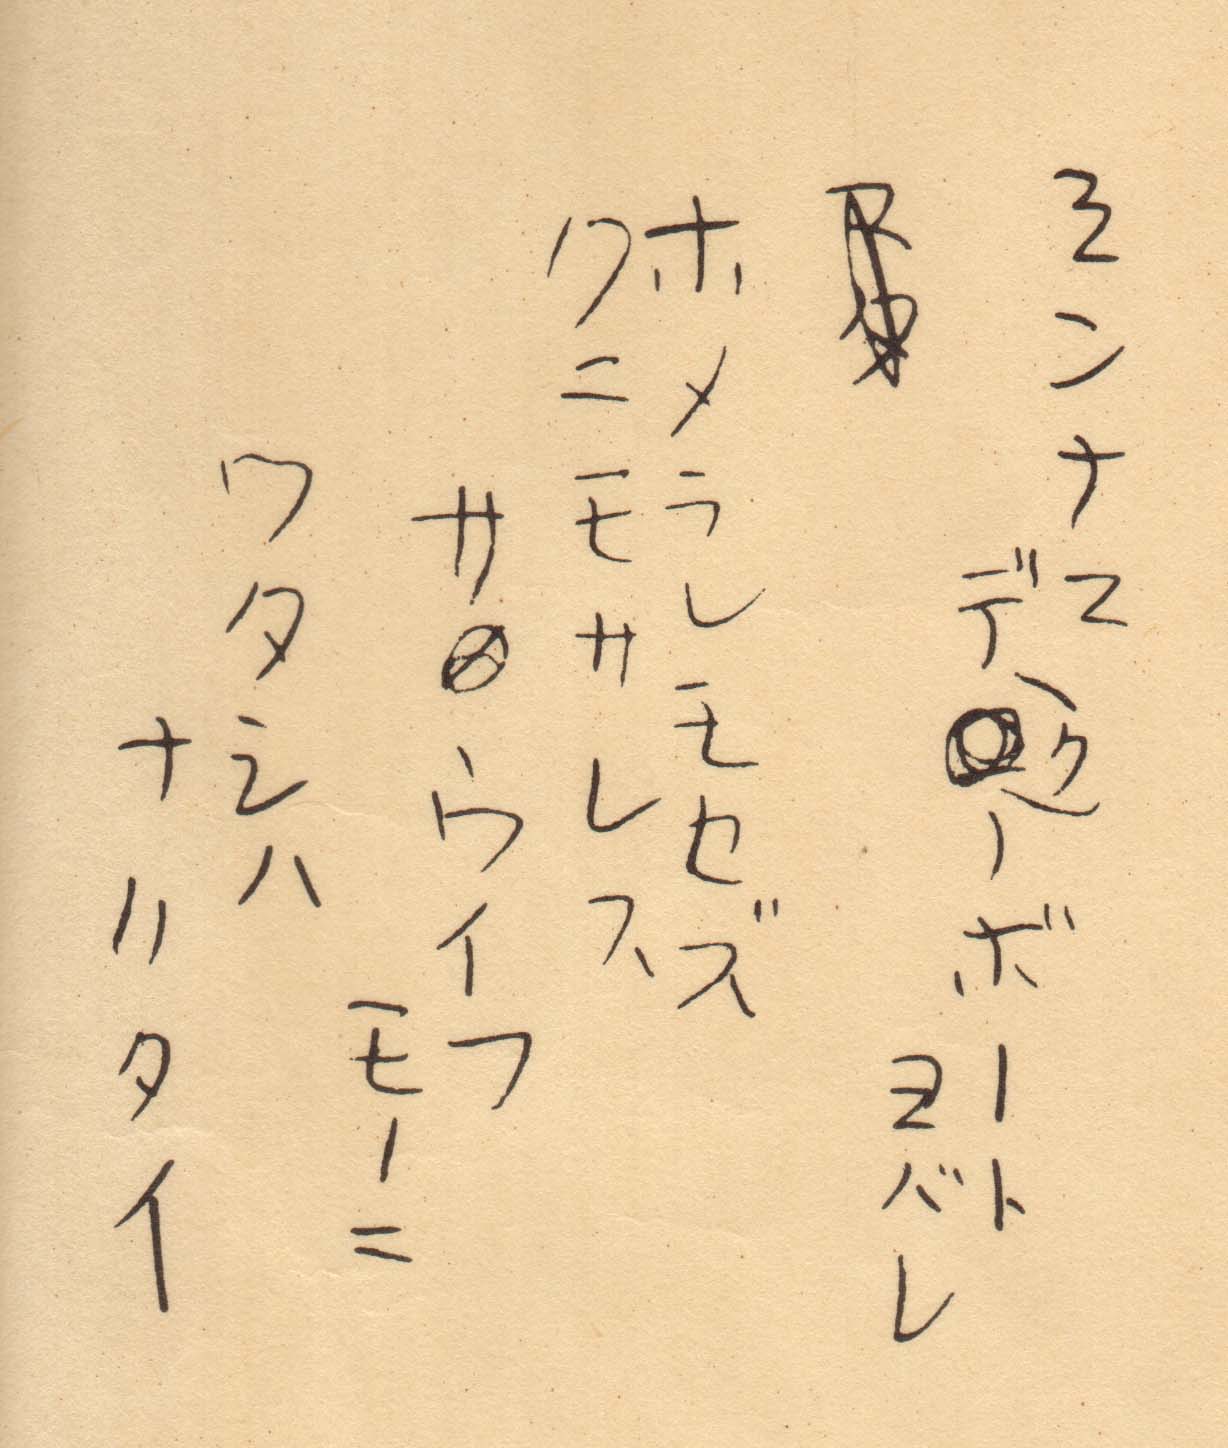 ミンナニ
デ(ク)ノボート
ヨバレ
ホメラレモセズ
クニモサレス
サウイフ
モノニ
ワタシハ
ナリタイ